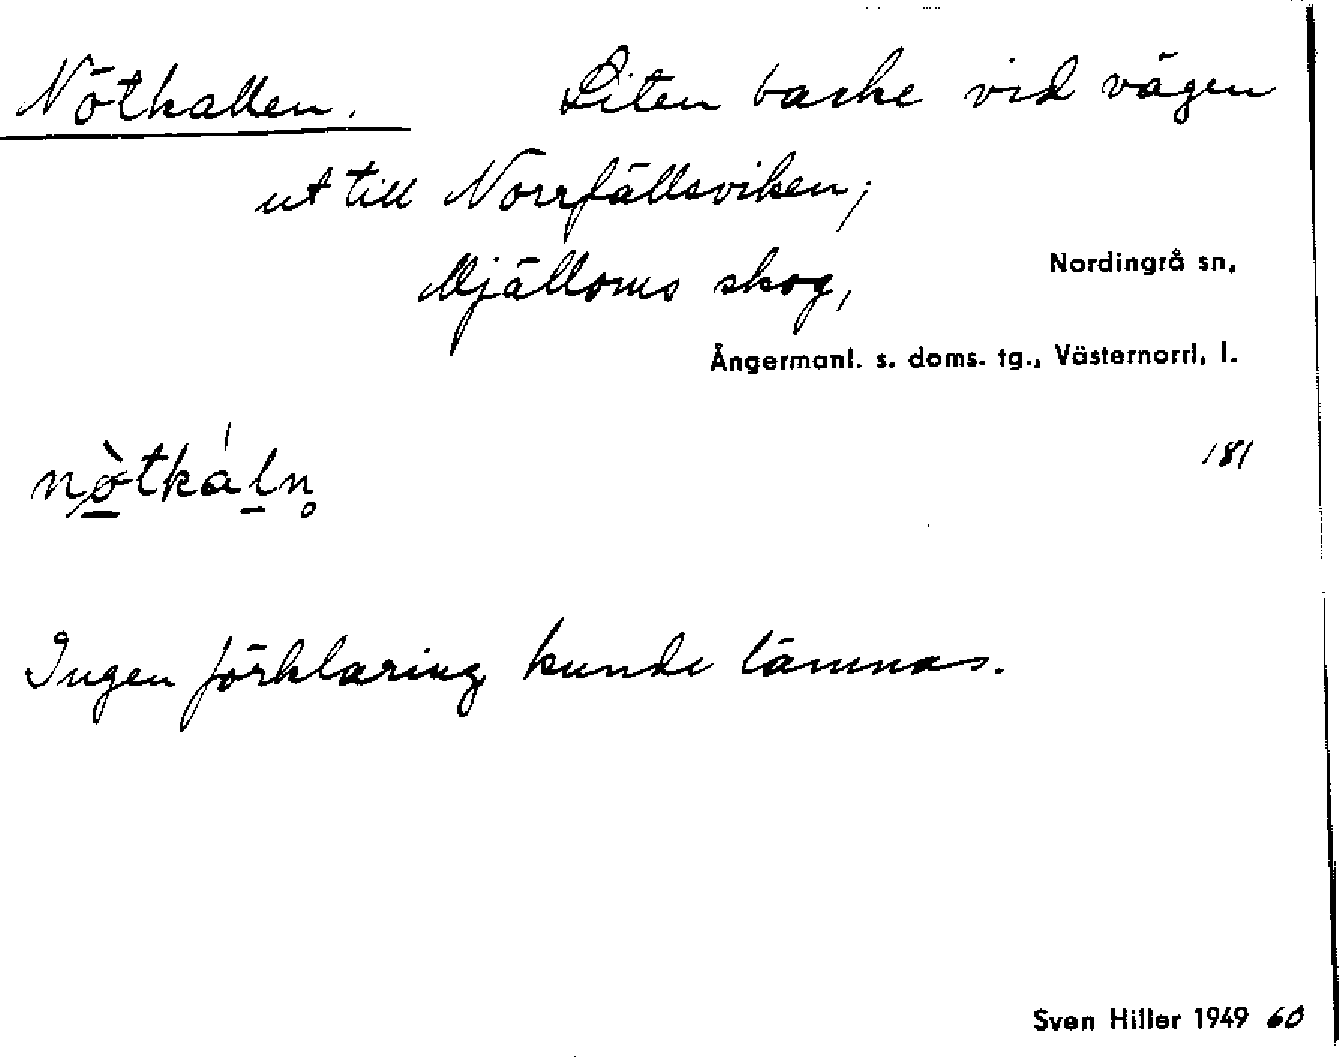 Nötkallen. Liten backe vid vägen
ut till Norrfällsviken;
Mjälloms skog,
Nordingrå sn,
Ångermanl. s. doms. tg., Västernorrl. l.
181
Ingen förklaring kunde lämnas.
Sven Hiller 1949 60